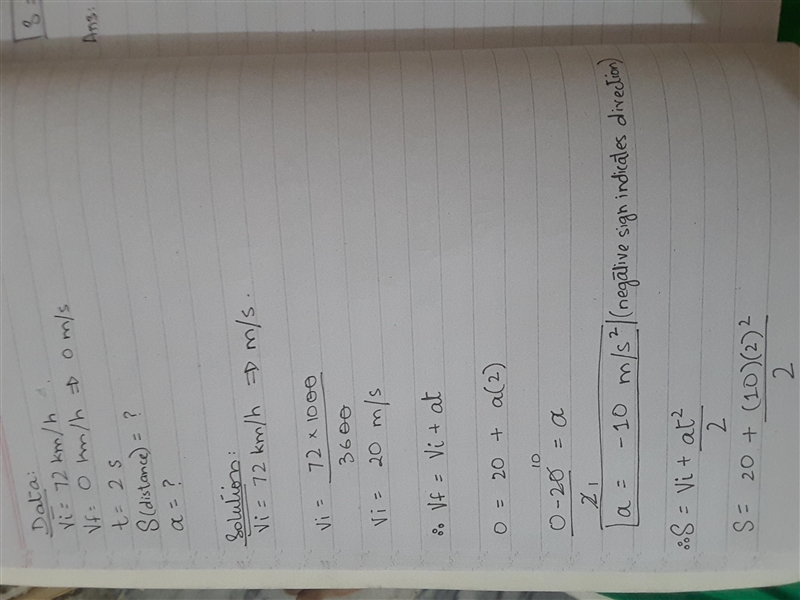 S =
Ans:
Data:
Vi = 72 km/h.
Vf = 0 km/h ⇒ 0 m/s
t = 2 s
S(distance) = ?
a = ?
Solution:
Vi = 72 km/h ⇒ m/s.
Vi = 72 × 1000
3600
Vi = 20 m/s
∴ Vf = Vi + at
0 = 20 + a(2)
10
0-20 = a
2 1
a = -10 m/s² (negative sign indicates direction)
∴ S = Vi + at²
2
S = 20 + (10)(2)²
2